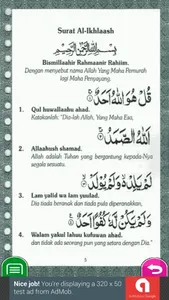 Surat Al-Ikhlaash
بِسْمِ اللَّهِ الرَّحْمَٰنِ الرَّحِيمِ
Bismillaahir Rahmaanir Rahiim.
Dengan menyebut nama Allah Yang Maha Pemurah
lagi Maha Penyayang.
قُلْ هُوَ اللَّهُ أَحَدٌ
1. Qul huwallaahu ahad.
Katakanlah: "Dia-lah Allah, Yang Maha Esa,
اللَّهُ الصَّمَدُ
2. Allaahush shamad.
Allah adalah Tuhan yang bergantung kepada-Nya
segala sesuatu.
لَمْ يَلِدْ وَلَمْ يُولَدْ
3. Lam yalid wa lam yuulad.
Dia tiada beranak dan tiada pula diperanakkan,
وَلَمْ يَكُنْ لَهُ كُفُوًا أَحَدٌ
4. Walam yakul lahuu kufuwan ahad.
dan tidak ada seorang pun yang setara dengan Dia."
Nice job! You're displaying a 320 x 50
test ad from AdMob.